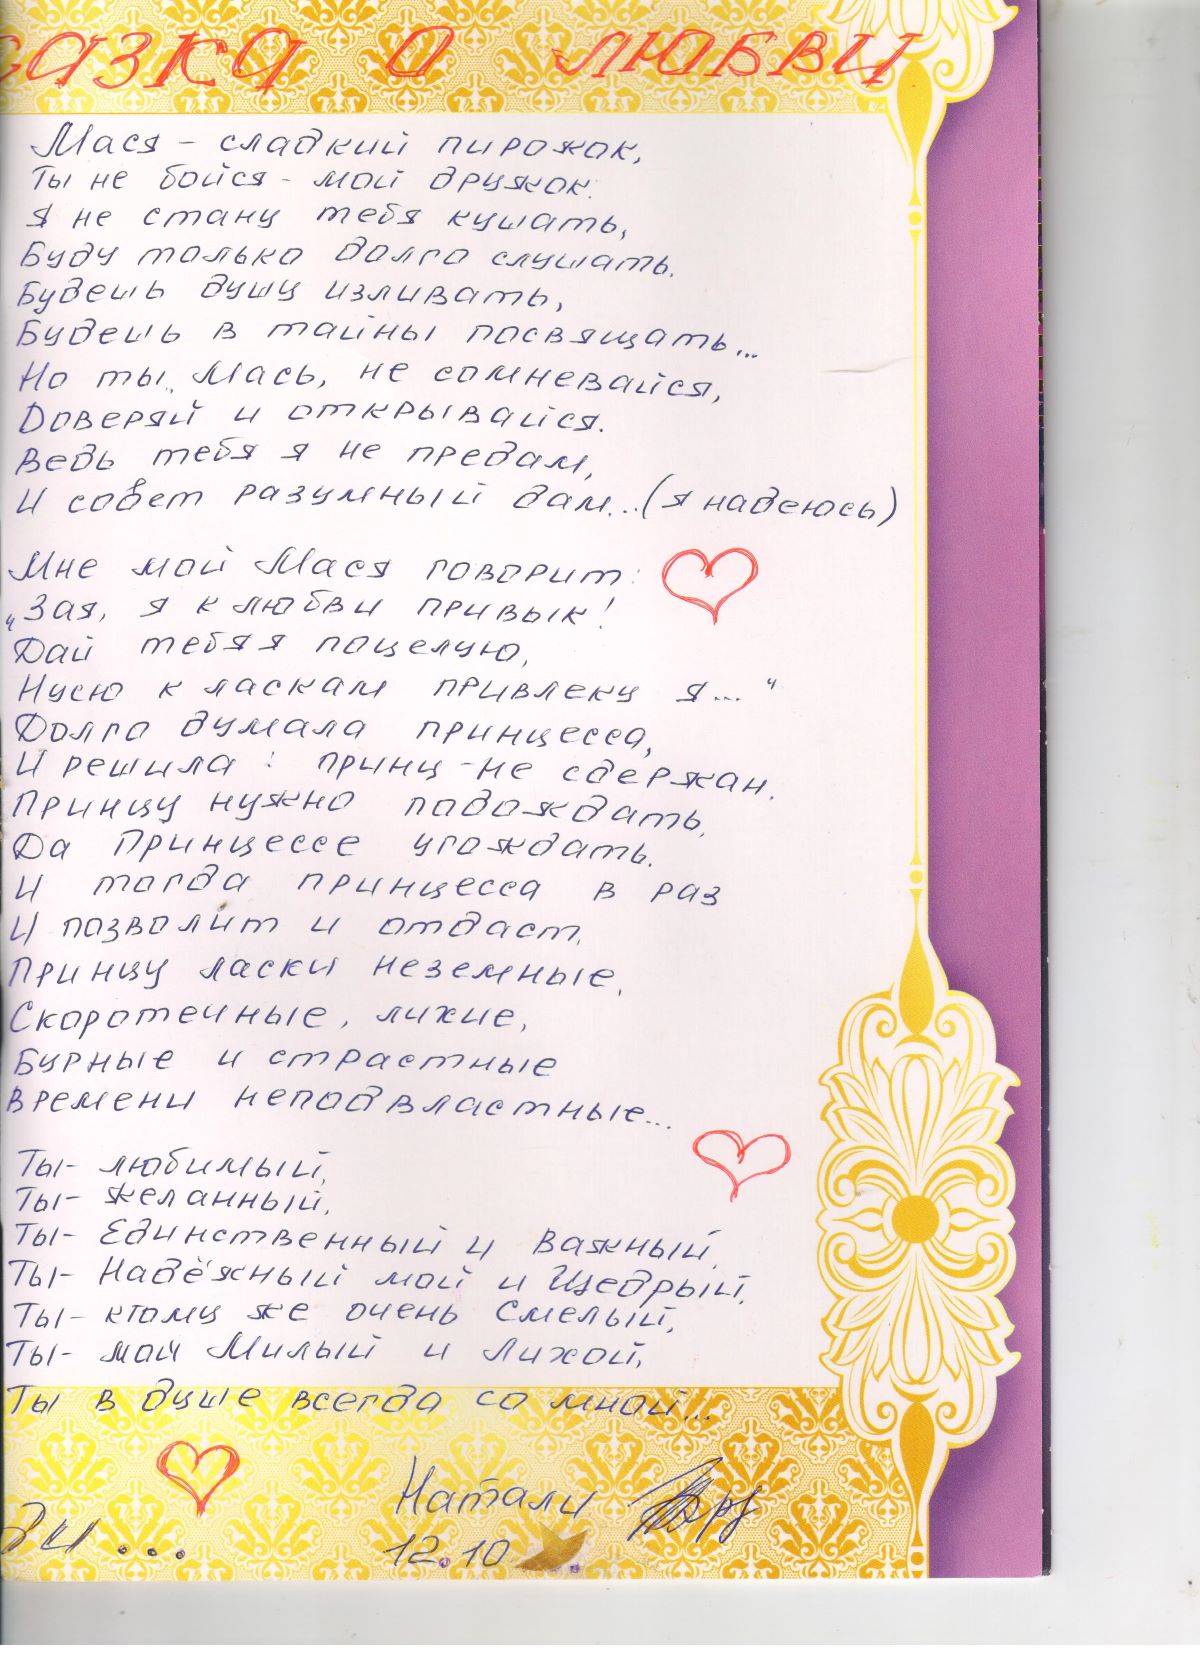 сказка о любви
Мася - сладкий пирожок,
Ты не бойся - мой дружок.
Я не стану тебя кушать,
Буду только долго слушать.
Будешь душу изливать,
Будешь в тайны посвящать...
Но ты, Мась, не сомневайся,
Доверяй и открывайся.
Ведь тебя я не предам,
И совет разумный дам...(я надеюсь)
Мне мой Мася говорит:
„Зая, я к любви привык!
Дай тебя я поцелую,
Нусю к ласкам привлеку я..."
Долго думала принцесса,
И решила: принц - не сдержан.
Принцу нужно подождать,
Да Принцессе угождать.
И тогда принцесса в раз
И позволит и отдаст,
Принцу ласки неземные,
Скоротечные, лихие,
Бурные и страстные
Времени неподвластные...
Ты - любимый,
Ты - желанный,
Ты - Единственный и Важный,
Ты - Надёжный мой и Щедрый,
Ты - ктому же очень Смелый,
Ты - мой Милый и Лихой,
Ты в душе всегда со мной...
Натали
12.10